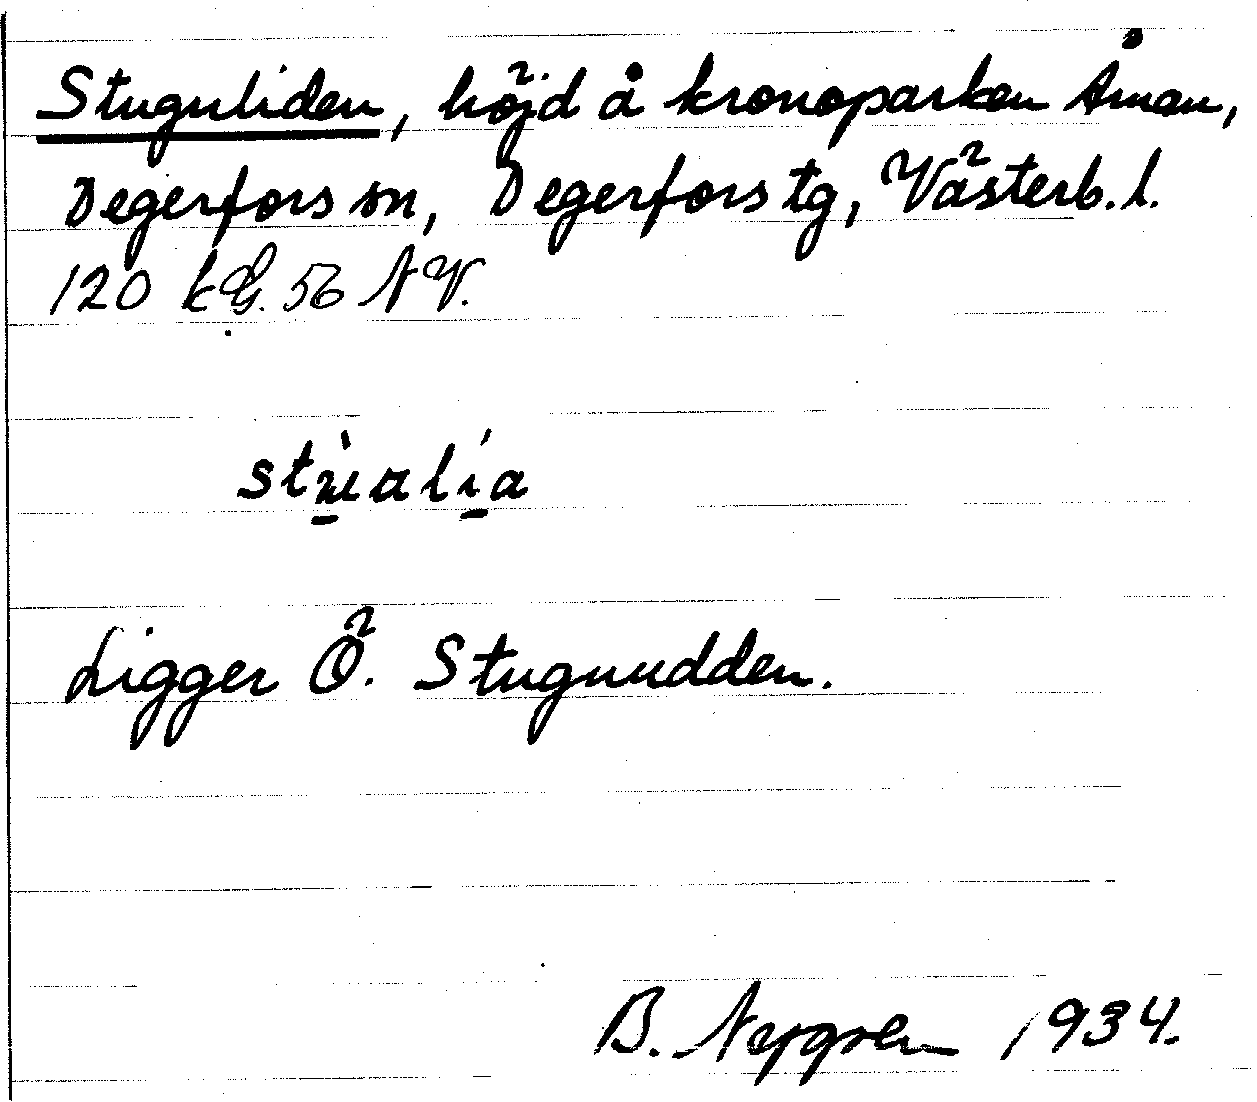 Stuguliden, höjd å kronoparken Åman,
Degerfors sn, Degerfors tg, Västerb. l.
120 kG. 56 NV.
stu̠̇alí̠a
Ligger Ö. Stuguudden.
B. Nygren 1934.